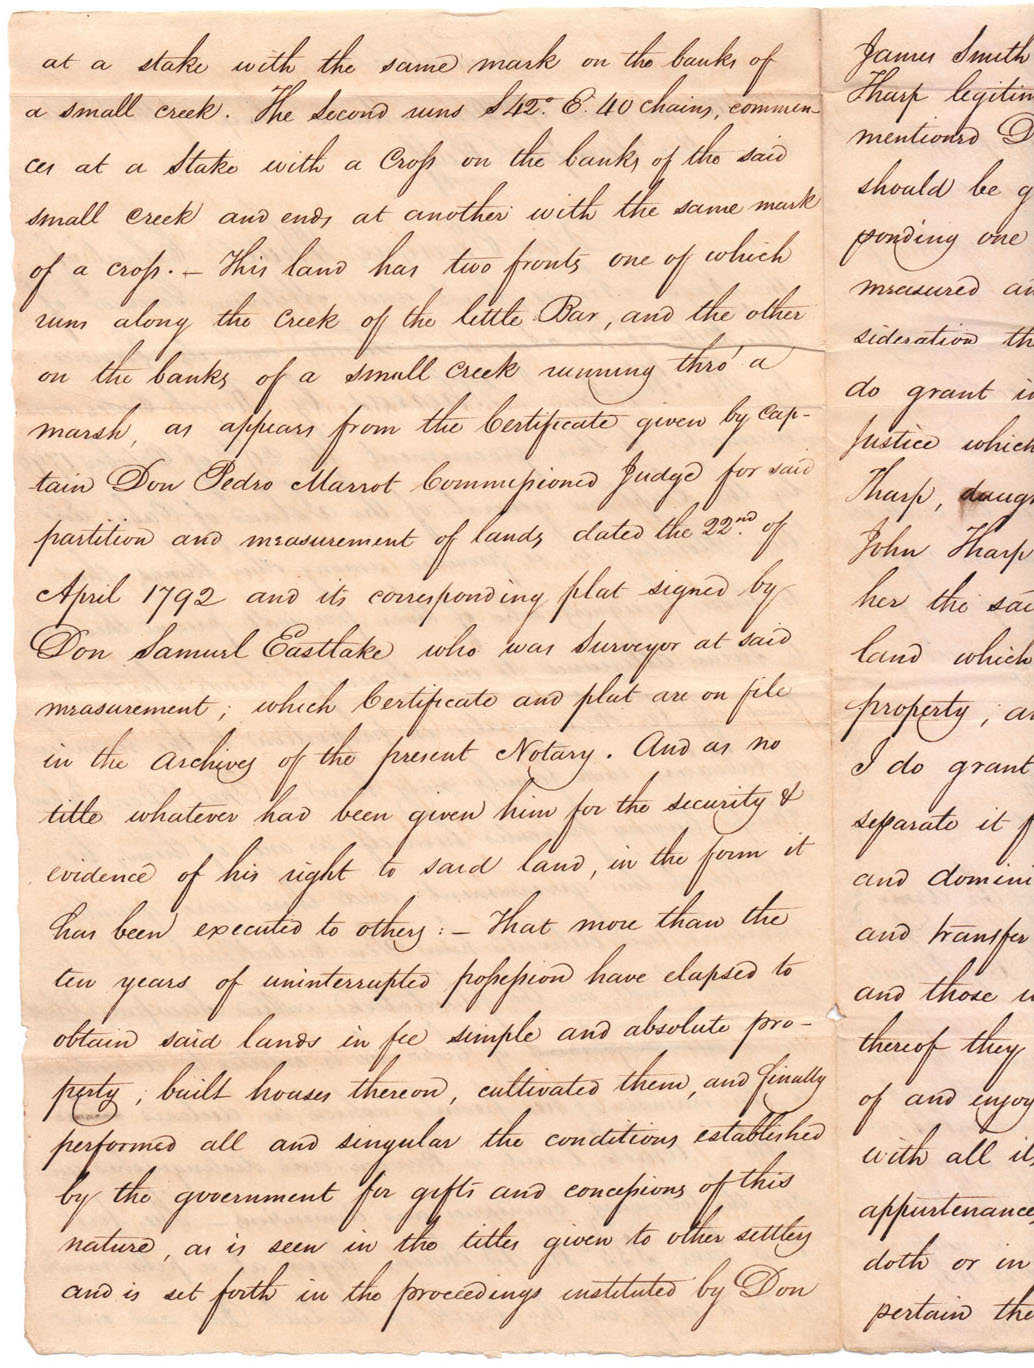 at a stake with the same mark on the banks of
a small creek. The Second runs S 42.° E. 40 chains, commen-
ces at a Stake with a Cross on the banks of the said
small creek and ends at another with the same mark
of a cross. — This land has two fronts one of which
runs along the creek of the little Bar, and the other
on the banks of a small creek running thro' a
marsh, as appears from the Certificate given by Cap-
tain Don Pedro Marrot Commissioned Judge for said
partition and measurement of lands dated the 22nd. of
April 1792 and its corresponding plat signed by
Don Samuel Eastlake who was Surveyor at said
measurement; which Certificate and plat are on file
in the archives of the present Notary. And as no
title whatever had been given him for the security &
evidence of his right to said land, in the form it
has been executed to others: — That more than the
ten years of uninterrupted possession have elapsed to
obtain said lands in fee simple and absolute pro-
perty; built houses thereon, cultivated them, and finally
performed all and singular the conditions established
by the government for gifts and concessions of this
nature, as is seen in the titles given to other settlers
and is set forth in the proceedings instituted by Don
James Smith
Tharp legitim
mentioned D
should be g
ponding one
measured an
sideration th
do grant in
Justice which
Tharp, daugh
John Tharp
her the sai
land which
property; an
I do grant
separate it f
and domini
and transfer
and those w
thereof they
of and enjoy
with all it
appurtenance
doth or in
pertain the